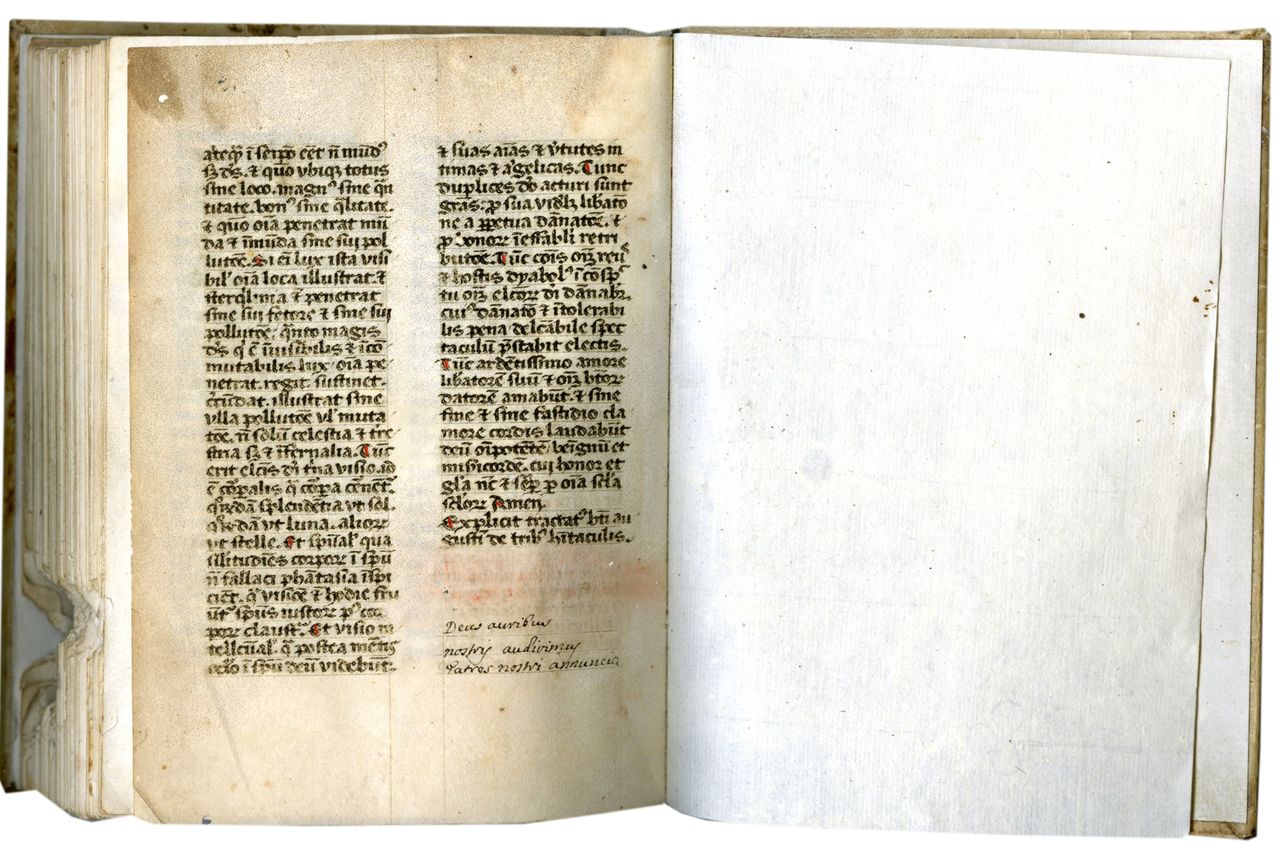 s; ds. & quo vbiq; totus
sine loco. magn⁹ sine q̄n
titate. bon⁹ sine q̄litate.
& quo oīa penetrat mū
da & īmūda sine sui pol
lutōe. Si eī lux ista visi
bil' oīa loca illustrat. &
& penetrat
sine sui fetore & sine sui
pollutōe. q̄nto magis
ds q' ē īuisibilis & īcō
mutabilis lux oīa pe
netrat. regit. sustinet.
illustrat sine
vlla pollutōe vl' muta
tōe. n̄ solū celestia & tre
stria s; & īfernalia. Tūc
erit elcīs dī t'na visio. id
ē corp̄alis q̄ corp̄a
splendētia vt sol.
vt luna. alior
vt stelle. Et sp̄ual' qua
silitudīes corpor ī sp̄ū
n̄ fallaci phātasia īspi
ciēt. & hodie fru
ūt' sp̄us iustor p⁹ cor
pore claust'. Et visio in
tellcūal'. q̄ postea mētis
oclo ī sp̄u deū videbūt.
& suas aīas & v'tutes in
timas & āgelicas. Tunc
duplices dō acturi sunt
gras; p sua vidl; lib'atō
ne a ppetua dānatōe. &
p honore īeffabli retri
butōe. Tūc cōis oīz reu⁹
& hostis dyabol⁹ ī cōsp̄c
tu oīz elcōr dī dānab'r.
cui⁹ dānatō & ītolerabi
lis pena delcābile spec
taculū p̄stabit electis.
Tūc ardētissimo amore
lib'atorē suū & oīz bōr
datorē amabūt. & sine
fine & sine fastidio cla
more cordis laudabūt
deū oīpotētē beignū et
misicordē. cui honor et
glā nc & sēp p oīa scla
sclōr Amen.
Explicit tractat⁹ bti au
gusti de trib⁹ hītaculis.
Deus auribus
nostris audivimus
Patres nostri annuncia